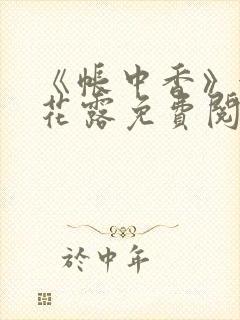 《帐中香》
花露免費閱
於中年